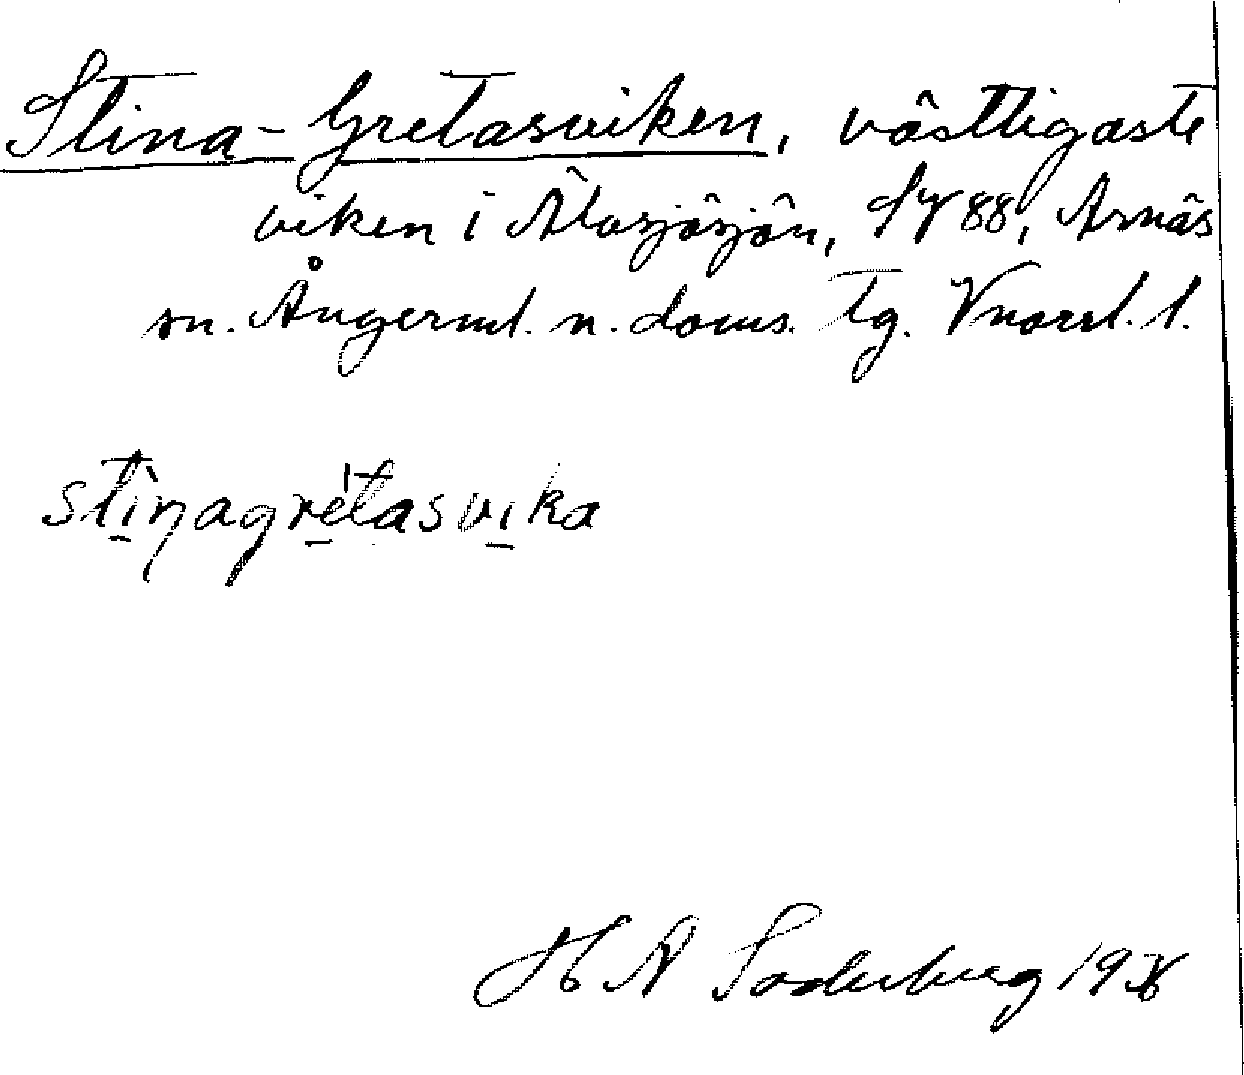 Stina-Gretasviken, västligaste
viken i Älasjösjön, 88, Arnäs
sn. Ångerml. n. doms. Tg. Vnorrl. l.
stinagretasvika
H A Söderberg